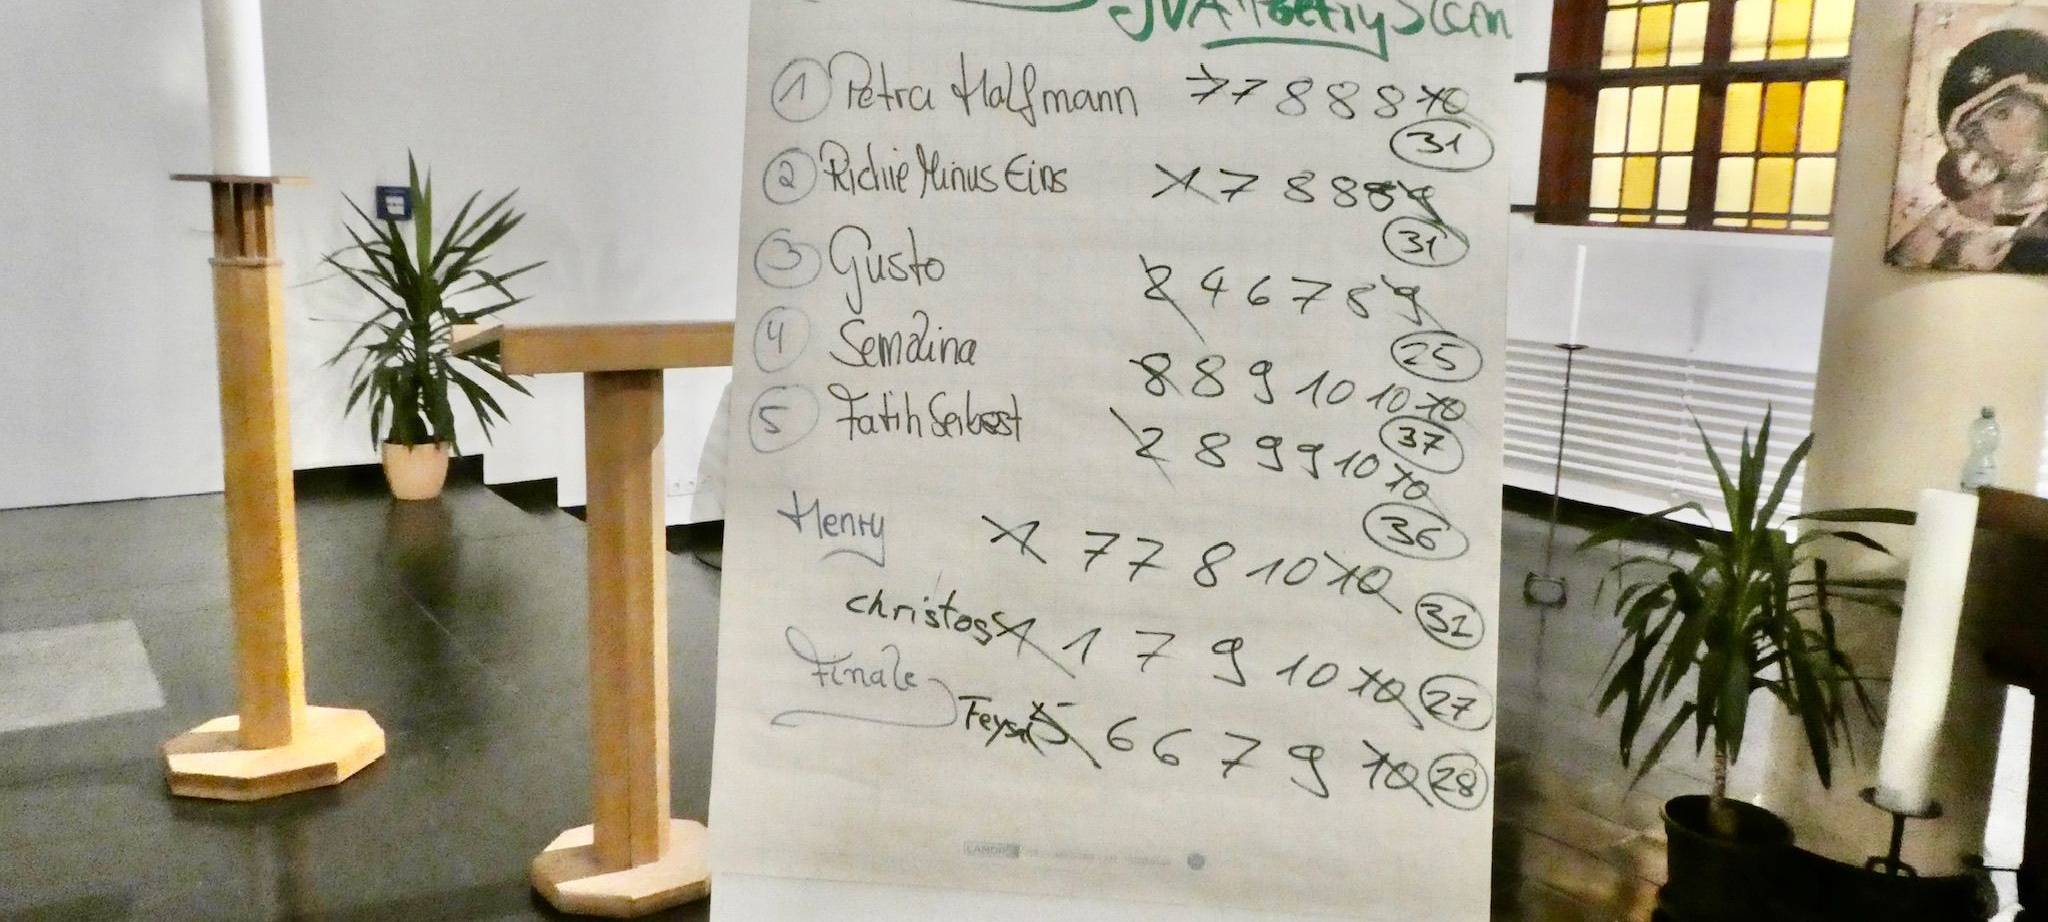 JVA Poetry Slam
1 Petra Halfmann 7 7 8 8 8 10
31
2 Richie Minus Eins 1 7 8 8 8 9
31
3 Gusto 2 4 6 7 8 9
25
4 Semalina 8 8 9 10 10 10
37
5 Fatih Seibest 2 8 9 9 10 10
36
Henry 1 7 7 8 10 10
32
christos 1 1 7 9 10 10 27
Finale
5 6 6 7 9 10 28